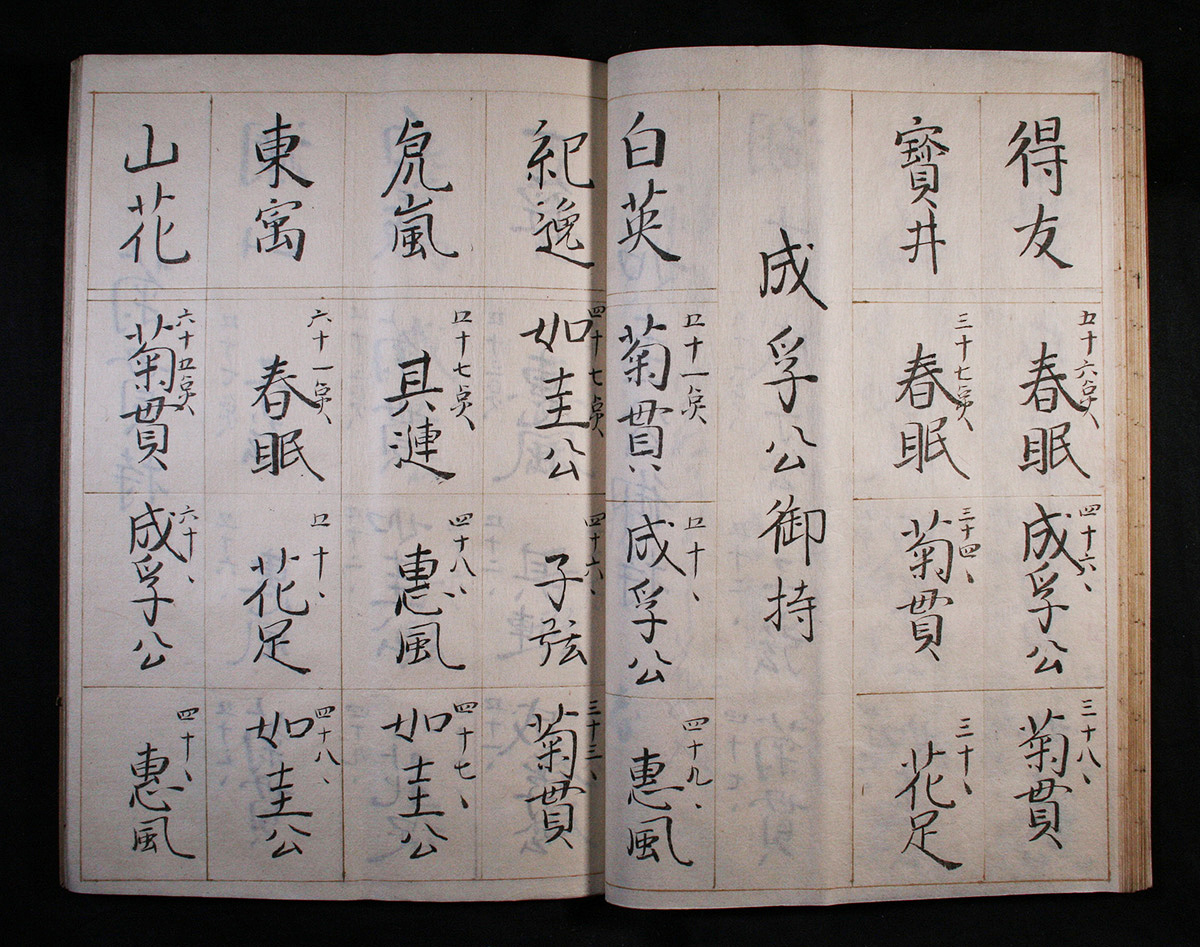 得友
五十六点
春眠
四十六、
成孚公
三十八、
菊貫
寳井
三十七点
春眠
三十四、
菊貫
三十、
花足
成孚公御持
白英
五十一点
菊貫
五十、
成孚公
四十九、
惠風
紀逸
四十七点
如圭公
四十六、
子弦
三十三、
菊貫
嵐
五十七点
具漣
四十八、
惠風
四十七、
如圭公
東寓
六十一点
春眠
五十、
花足
四十八、
如圭公
山花
六十五点
菊貫
六十、
成孚公
四十、
惠風